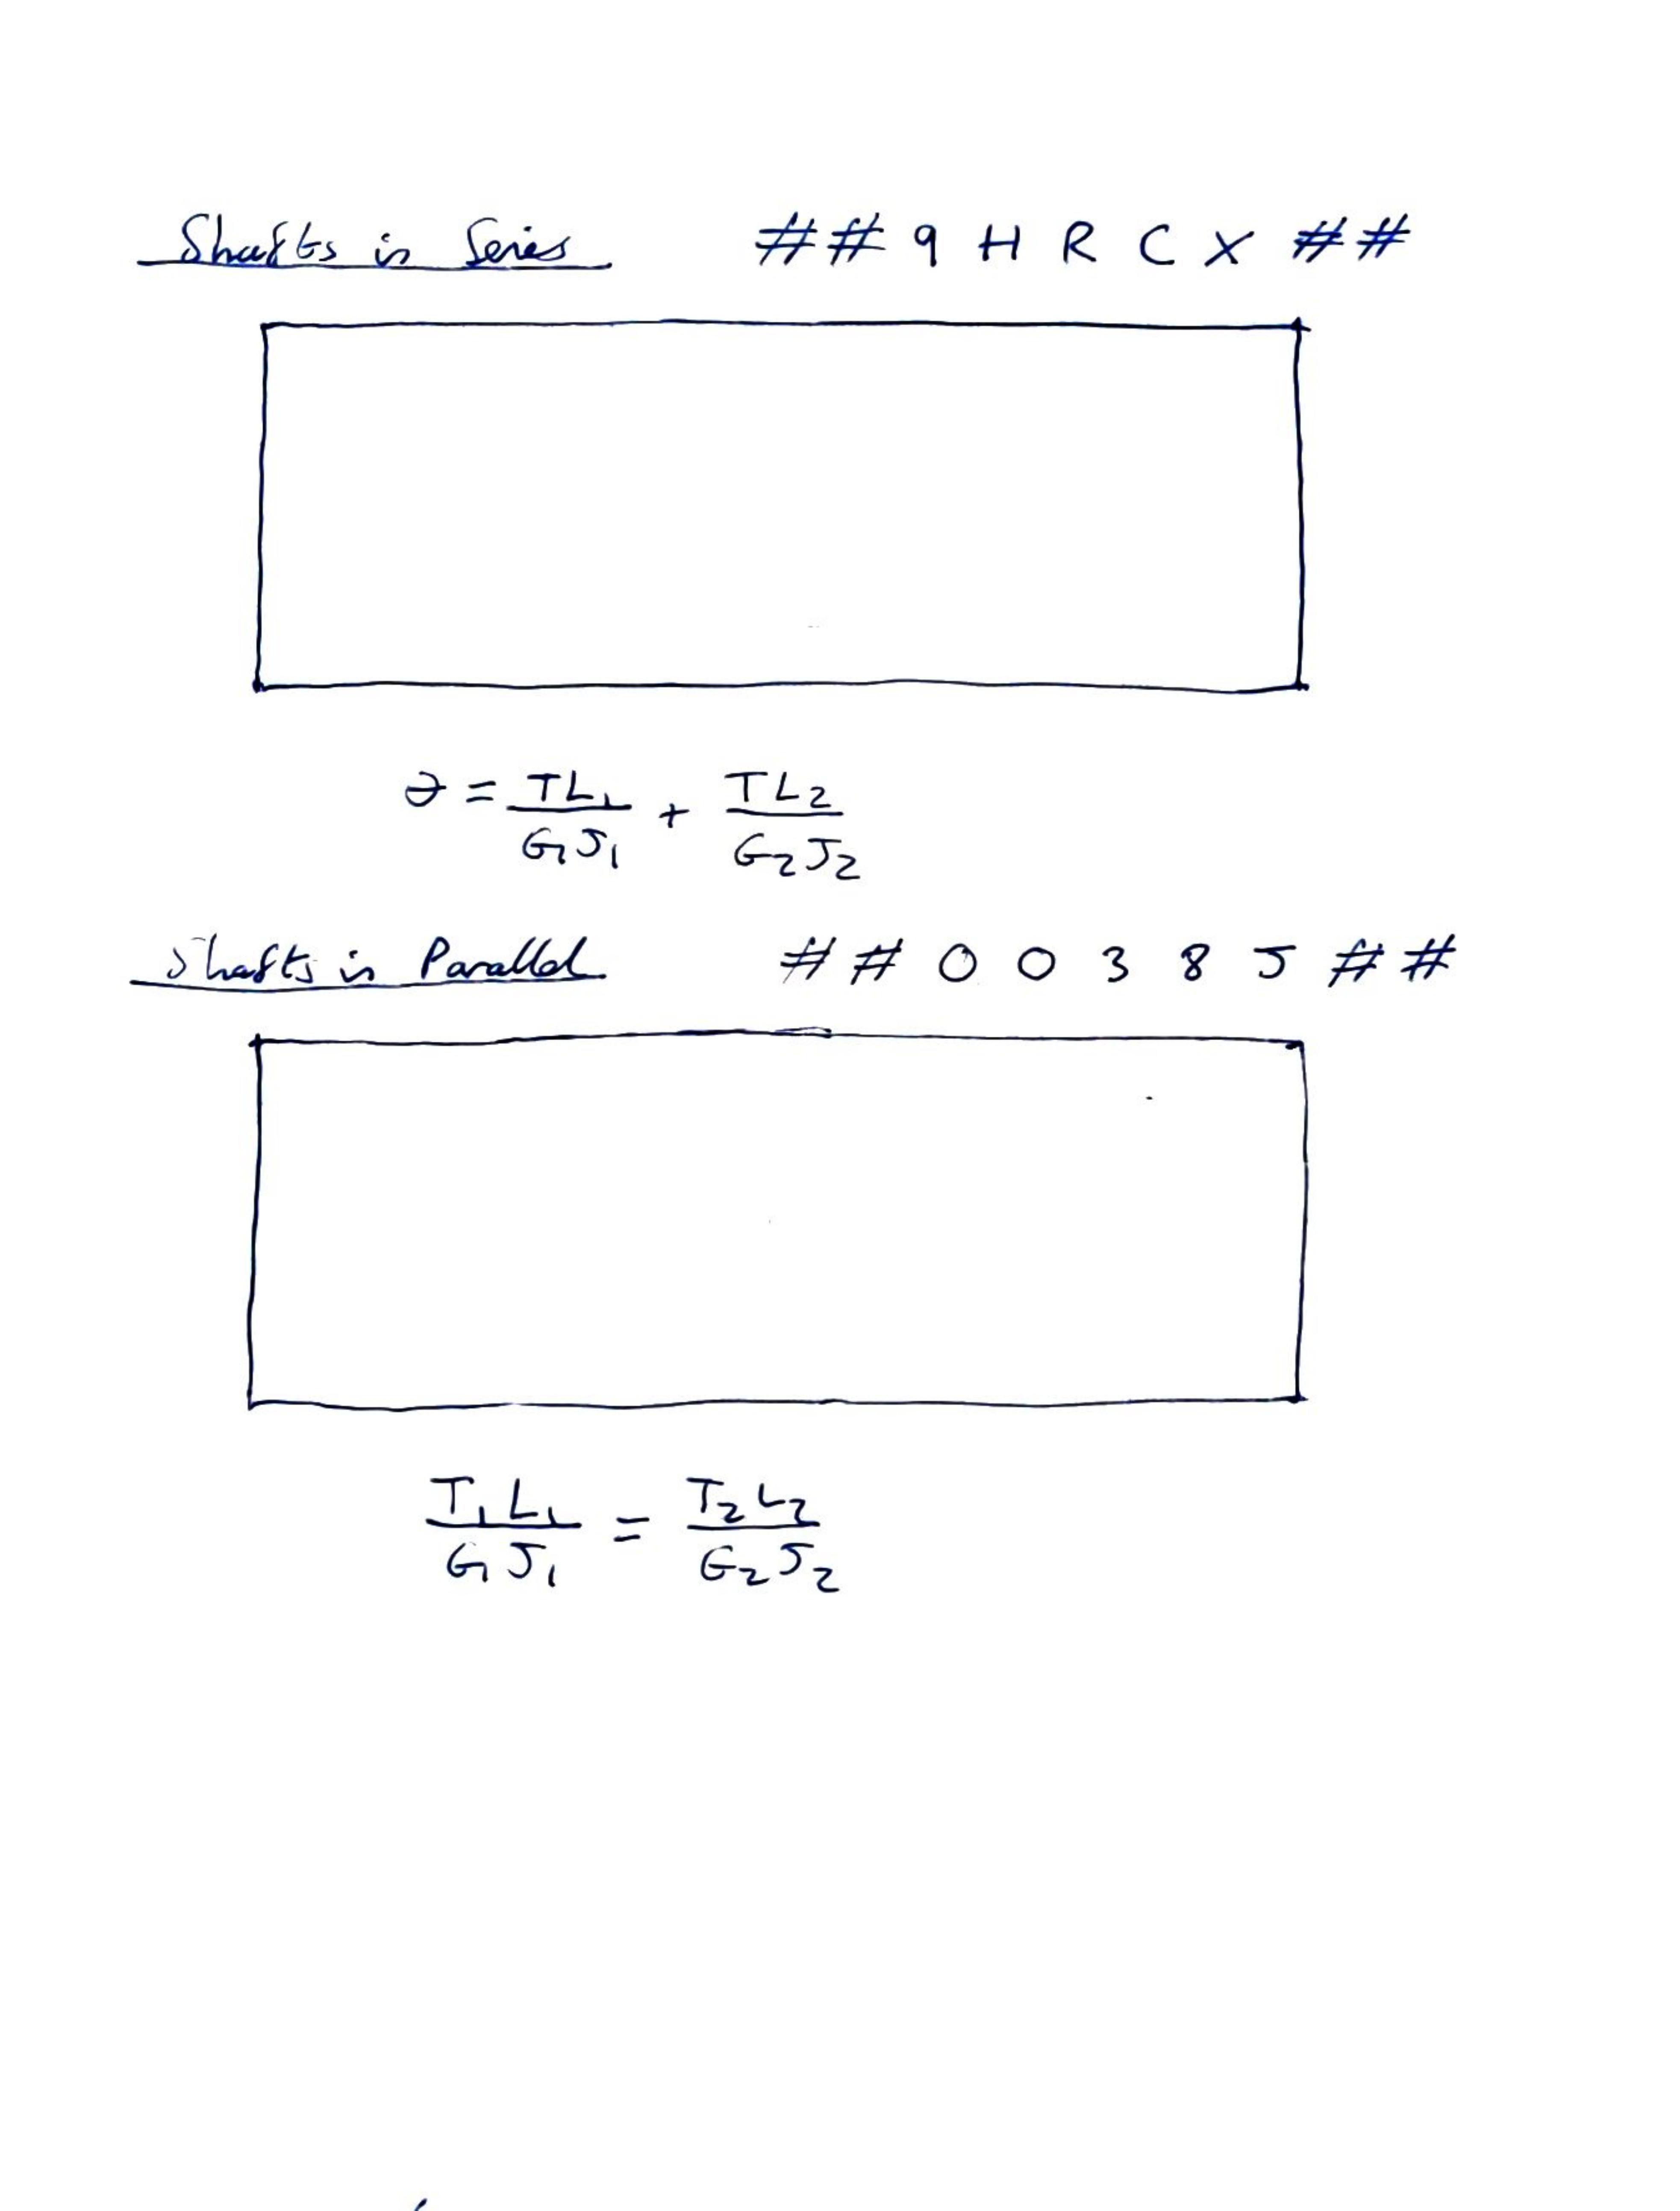 Shafts in Series ##9HRCX##
θ = TL₁/G₁J₁ + TL₂/G₂J₂
Shafts in Parallel ##00385##
T₁L₁/G₁J₁ = T₂L₂/G₂J₂